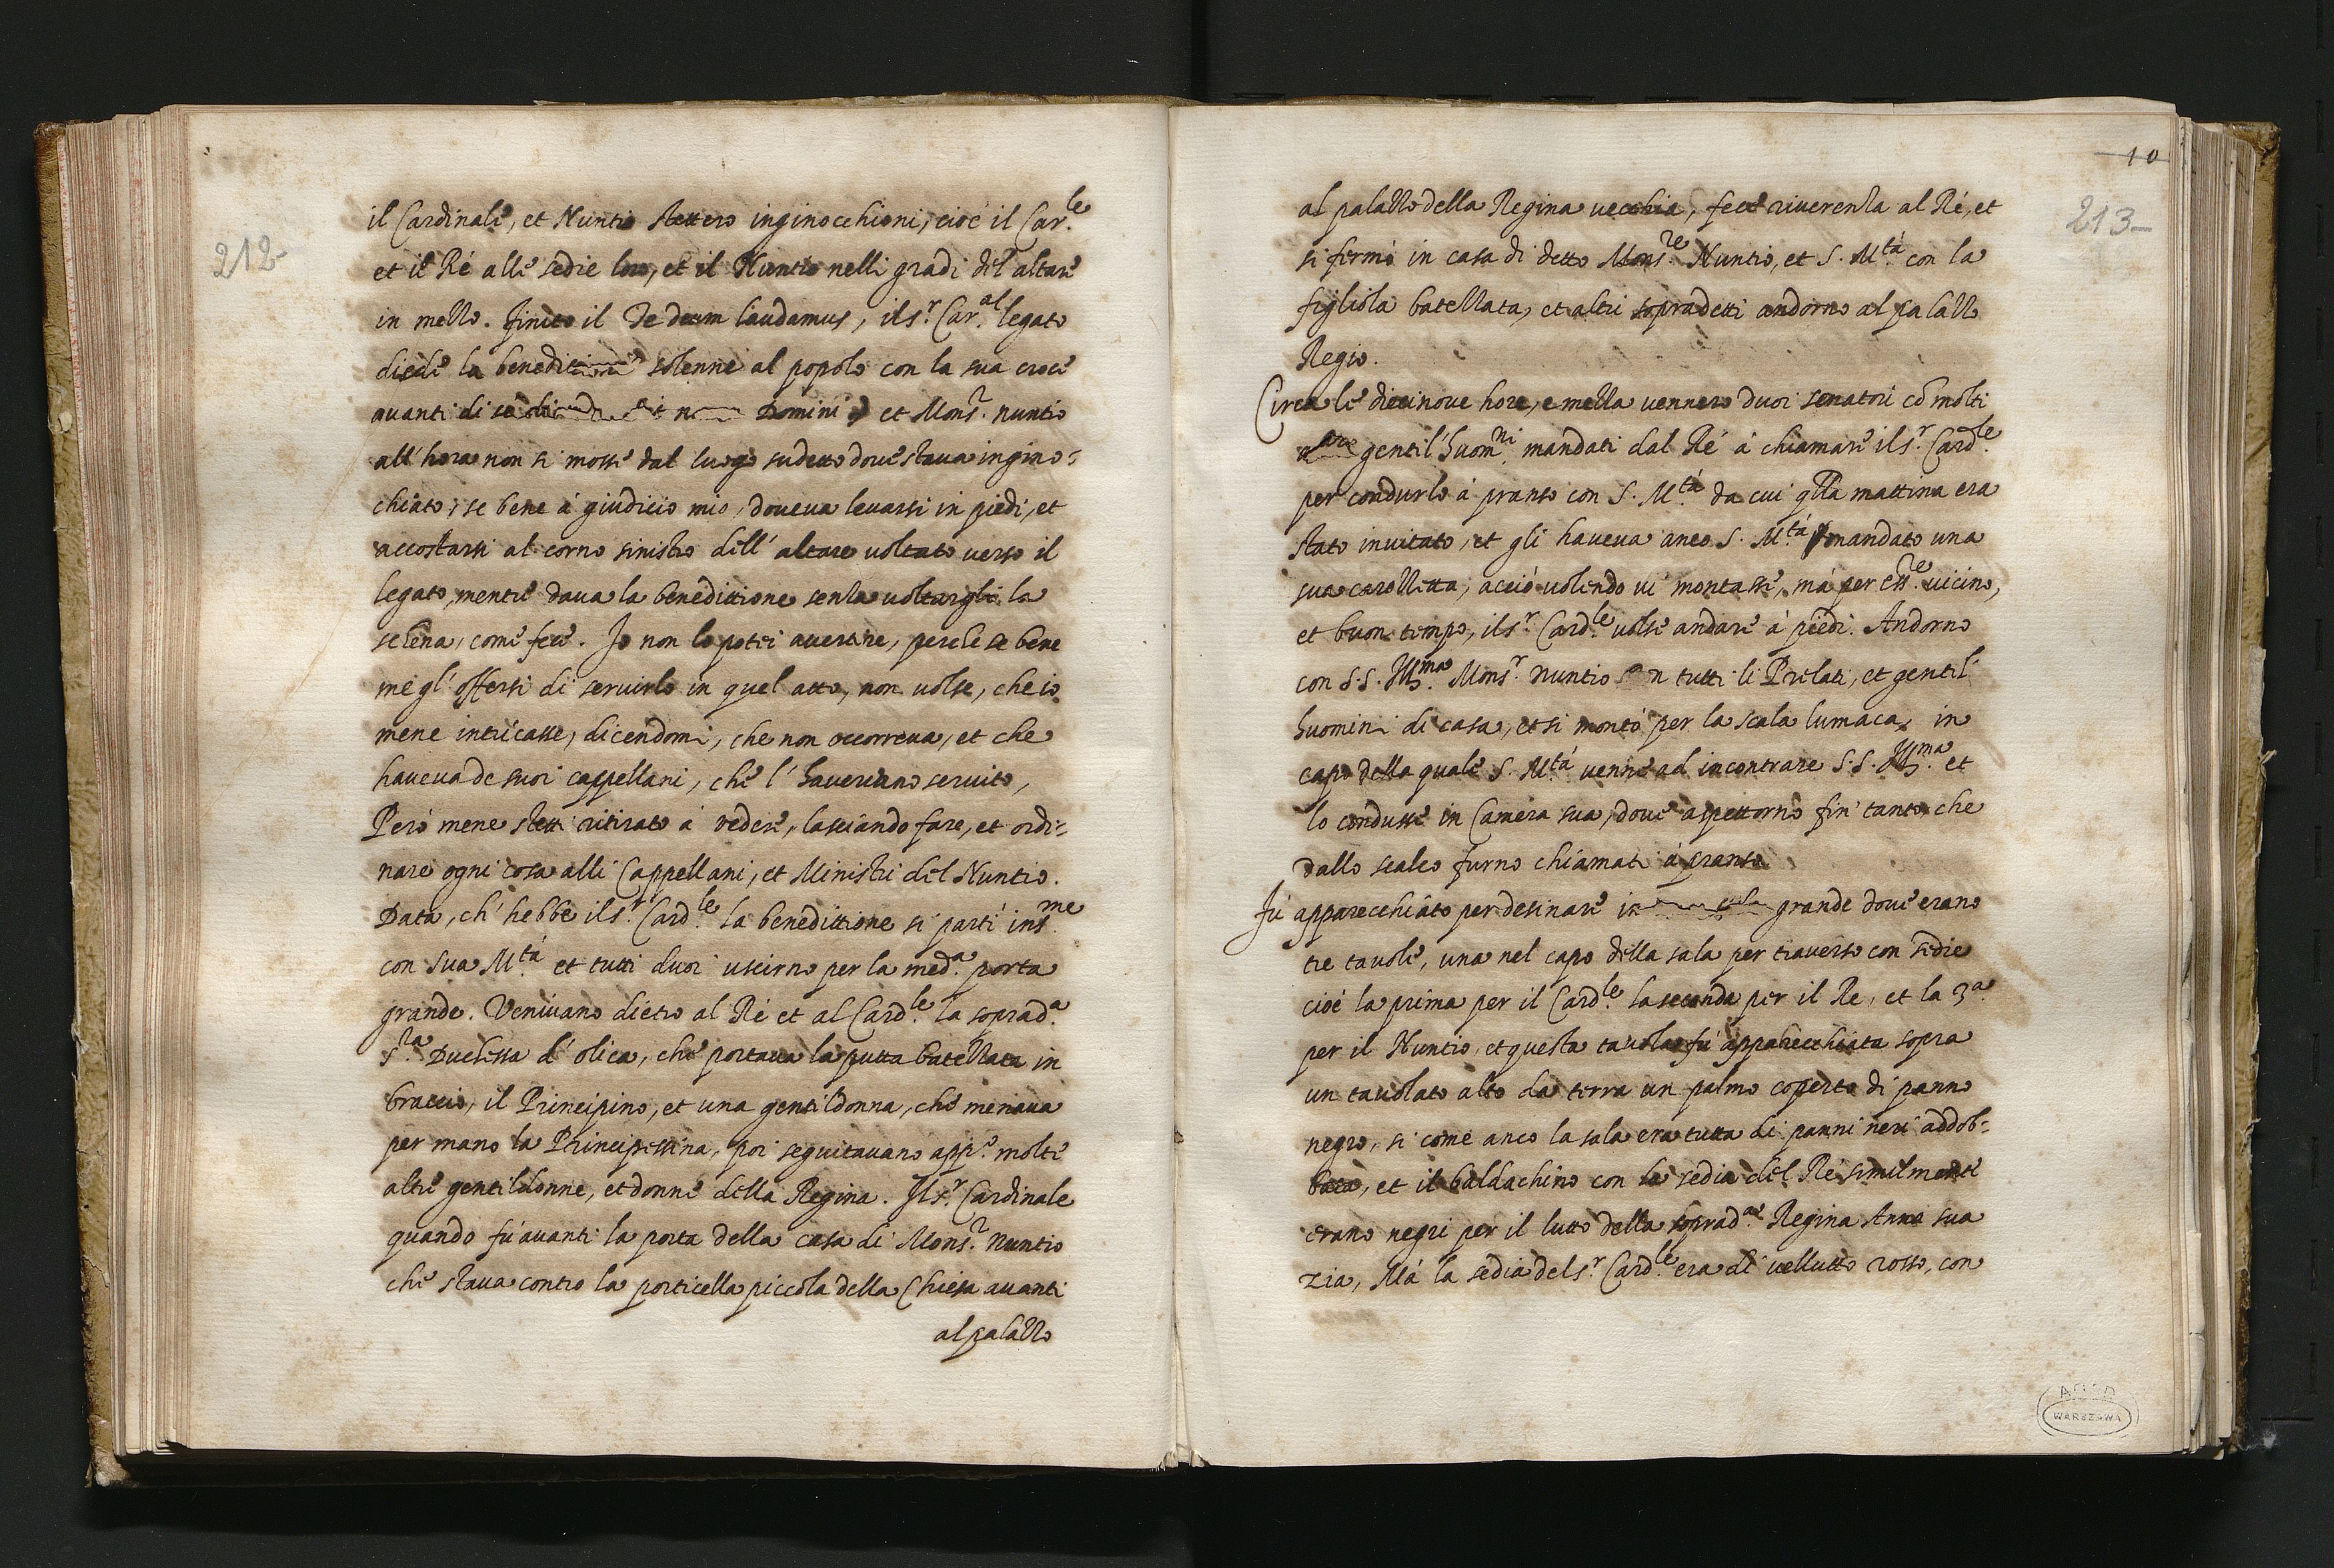 212
il Cardinale, et Nuntio stettero inginocchioni, cioé il Car.le
et il Ré alle sedie loro, et il Nuntio nelli gradi del altare
in mezzo. Finito il Te deum laudamus, il s.r Car.al legato
diede la benedittione solenne al popolo con la sua croce
avanti di se Domini et Mons.r nuntio
all'hora non si mosse dal luogo sudetto dove stava ingino=
chiato, se bene á giudicio mio, doveva levarsi in piedi, et
accostarsi al corno sinistro dell'altare voltato verso il
legato, mentre dava la benedittione senza voltargli la
schena, come fece. Io non lo potei avertire, perche se bene
me gl'offersi di servirlo in quel atto, non volse, che io
mene intricasse, dicendomi, che non occorreva, et che
haveva de suoi cappellani, che l'haveriano servito,
Peró mene stetti ritirato á vedere, lasciando fare, et ordi=
nare ogni cosa alli Cappellani, et Ministri del Nuntio.
Data, ch'hebbe il s.r Card.le la benedittione si partí ins.me
con sua M.tá et tutti duoi uscirno per la med.a porta
grande. Venivano dietro al Ré et al Card.le la soprad.a
s.ra Duchessa d'olica, che portava la putta batezzata in
braccio, il Principino, et una gentildonna, che menava
per mano la Principessina, poi seguitavano app.o molte
altre gentildonne, et donne della Regina. Il s.r Cardinale
quando fú avanti la porta della casa di Mons.r nuntio
che stava contro la porticella piccola della Chiesa avanti
al palazzo
10
213
al palazzo della Regina vecchia, fece riverenza al Ré, et
si fermó in casa di detto Mons.re Nuntio, et S. M.tá con la
figliola batezzata, et altri sopradetti andorno al palazzo
Regio.
Circa le diecinove hore, e mezza vennero duoi senatori cō molti
gentil'huom.ni mandati dal Ré á chiamare il s.r Card.le
per condurlo á pranso con S. M.tá da cui q̄lla mattina era
stato invitato, et gli haveva anco S. M.tá mandato una
sua carozzetta, acció volendo vi montasse, má per ess.re vicino,
et buon tempo, il s.r Card.le volse andare á piedi. Andorno
con S.S. Ill.ma Mons.r nuntio con tutti li Prelati, et gentil'
huomini di casa, et si montó per la scala lumaca, in
capo della quale S. M.tá venne ad incontrare S.S. Ill.ma et
lo condusse in Camera sua, dove aspettorno fin'tanto, che
dallo scalco furno chiamati á pranso.
Fú apparecchiato per desinare in sala grande dove erano
tre tavole, una nel capo della sala per traverso con sedie
cioé la prima per il Card.le la seconda per il Re, et la 3.a
per il Nuntio, et questa tavola fú apparecchiata sopra
un tavolato alto da terra un palmo coperto di panno
negro, si come anco la sala era tutta di panni neri addob=
bata, et il baldachino con la sedia del Ré similmente
erano negri per il lutto della soprad.a Regina Anna sua
zia, Má la sedia del s.r Card.le era di vellutto rosso, con
AGAD
WARSZAWA